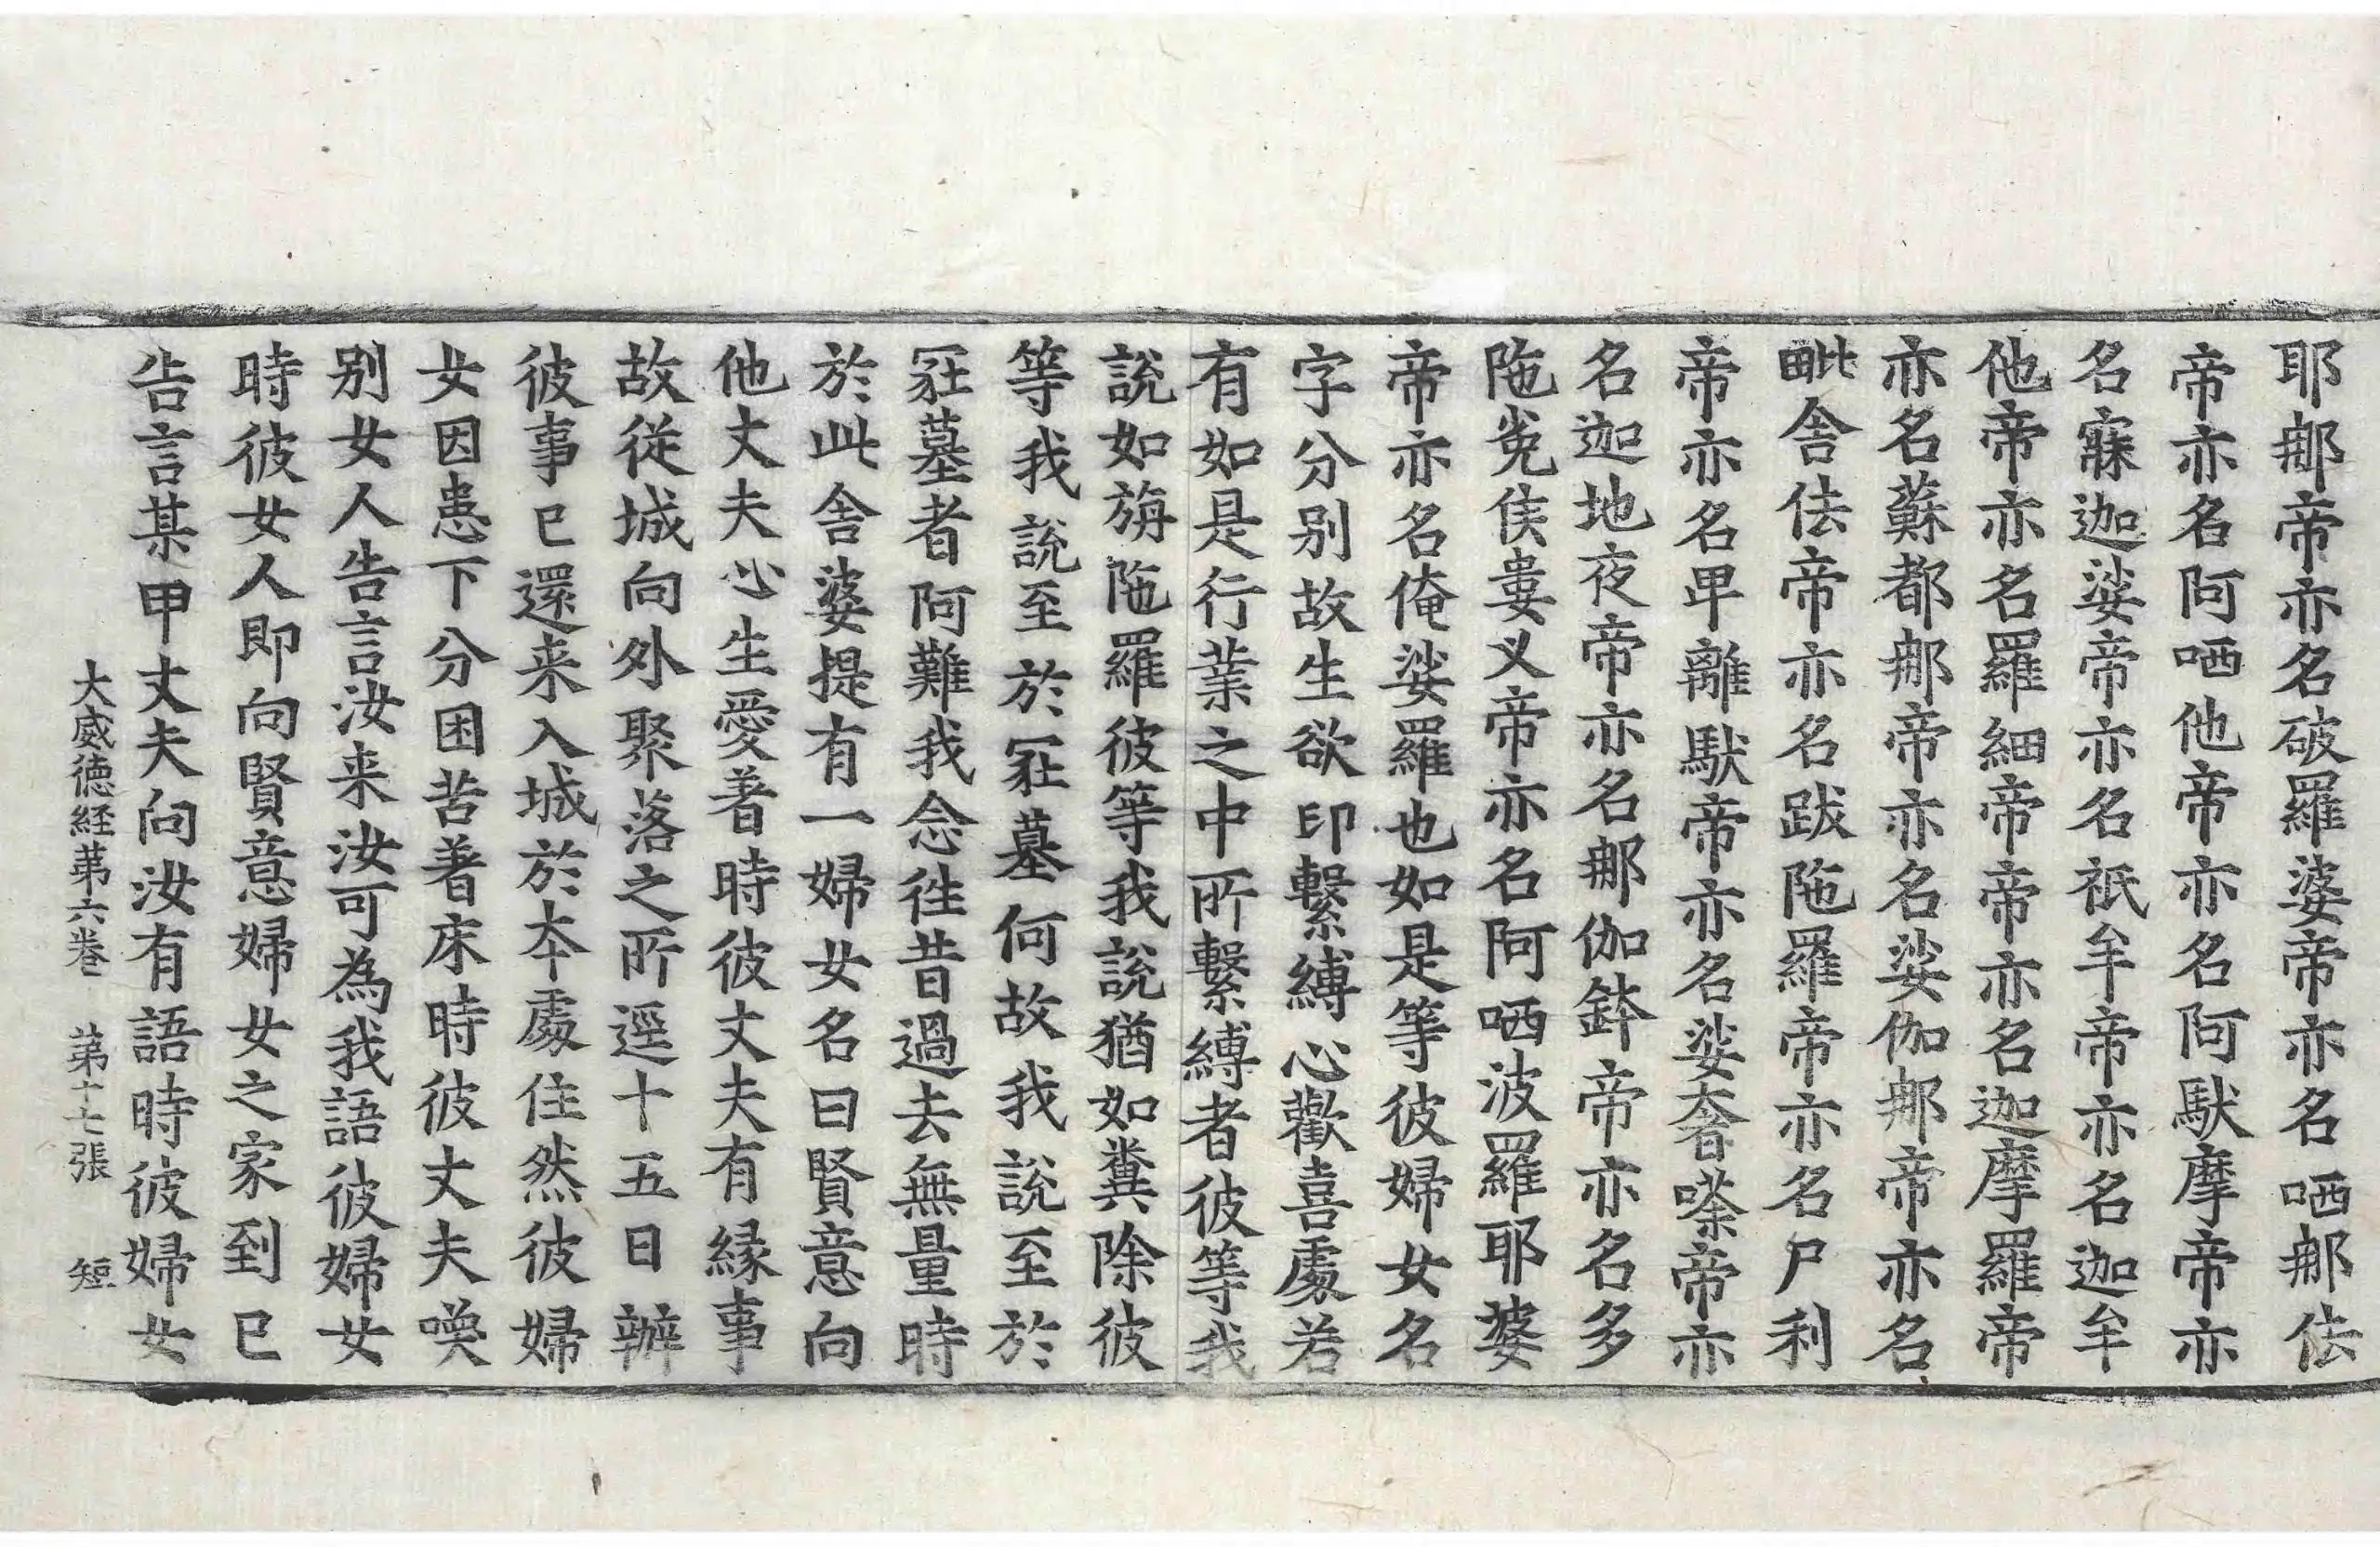 耶䣧帝亦名破羅婆帝亦名哂䣧佉
帝亦名阿哂他帝亦名阿䭾摩帝亦
名寐迦娑帝亦名祇牟帝亦名迦牟
他帝亦名羅細帝帝亦名迦摩羅帝
亦名蘇都䣧帝亦名娑伽䣧帝亦名
毗舍佉帝亦名跋陁羅帝亦名尸利
帝亦名卑離䭾帝亦名娑奢嗏帝亦
名迦地夜帝亦名䣧伽鉢帝亦名多
陁㝹侯婁叉帝亦名阿哂波羅耶婆
帝亦名俺娑羅也如是等彼婦女名
字分別故生欲印繫縛心歡喜處若
有如是行業之中所繫縛者彼等我
說如旃陁羅彼等我說猶如糞除彼
等我說至於冢墓何故我說至於
冢墓者阿難我念徃昔過去無量時
於此舍婆提有一婦女名曰賢意向
他丈夫心生愛著時彼丈夫有縁事
故從城向外聚落之所逕十五日辦
彼事已還来入城於本處住然彼婦
女因患下分困苦著床時彼丈夫喚
別女人告言汝来汝可為我語彼婦女
時彼女人即向賢意婦女之家到已
告言某甲丈夫向汝有語時彼婦女
大威德経苐六卷 苐十七張 短